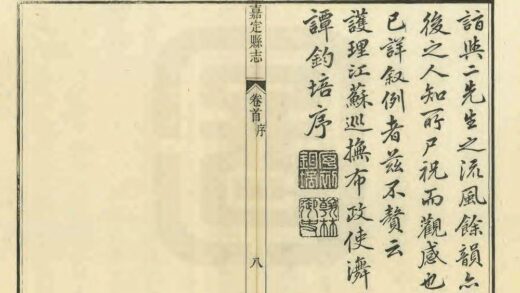 詣與二先生之流風餘韻亦
後之人知所尸祝而觀感也
已詳叙例者茲不贅云
護理江蘇巡撫布政使濟
譚鈞培序
嘉定縣志
卷首
序
八